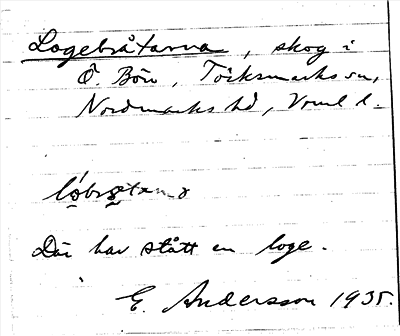 Logebråtarna, skog i
Ö Bön, Töcksmarks sn,
Nordmarks hd, Vrml l.
Där har stått en loge.
E. Andersson 1935.